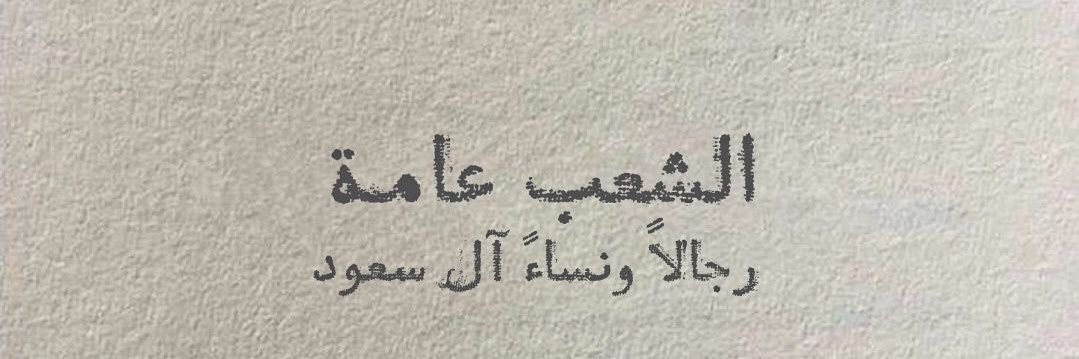 الشعب عامة
رجالاً ونساءً آل سعود